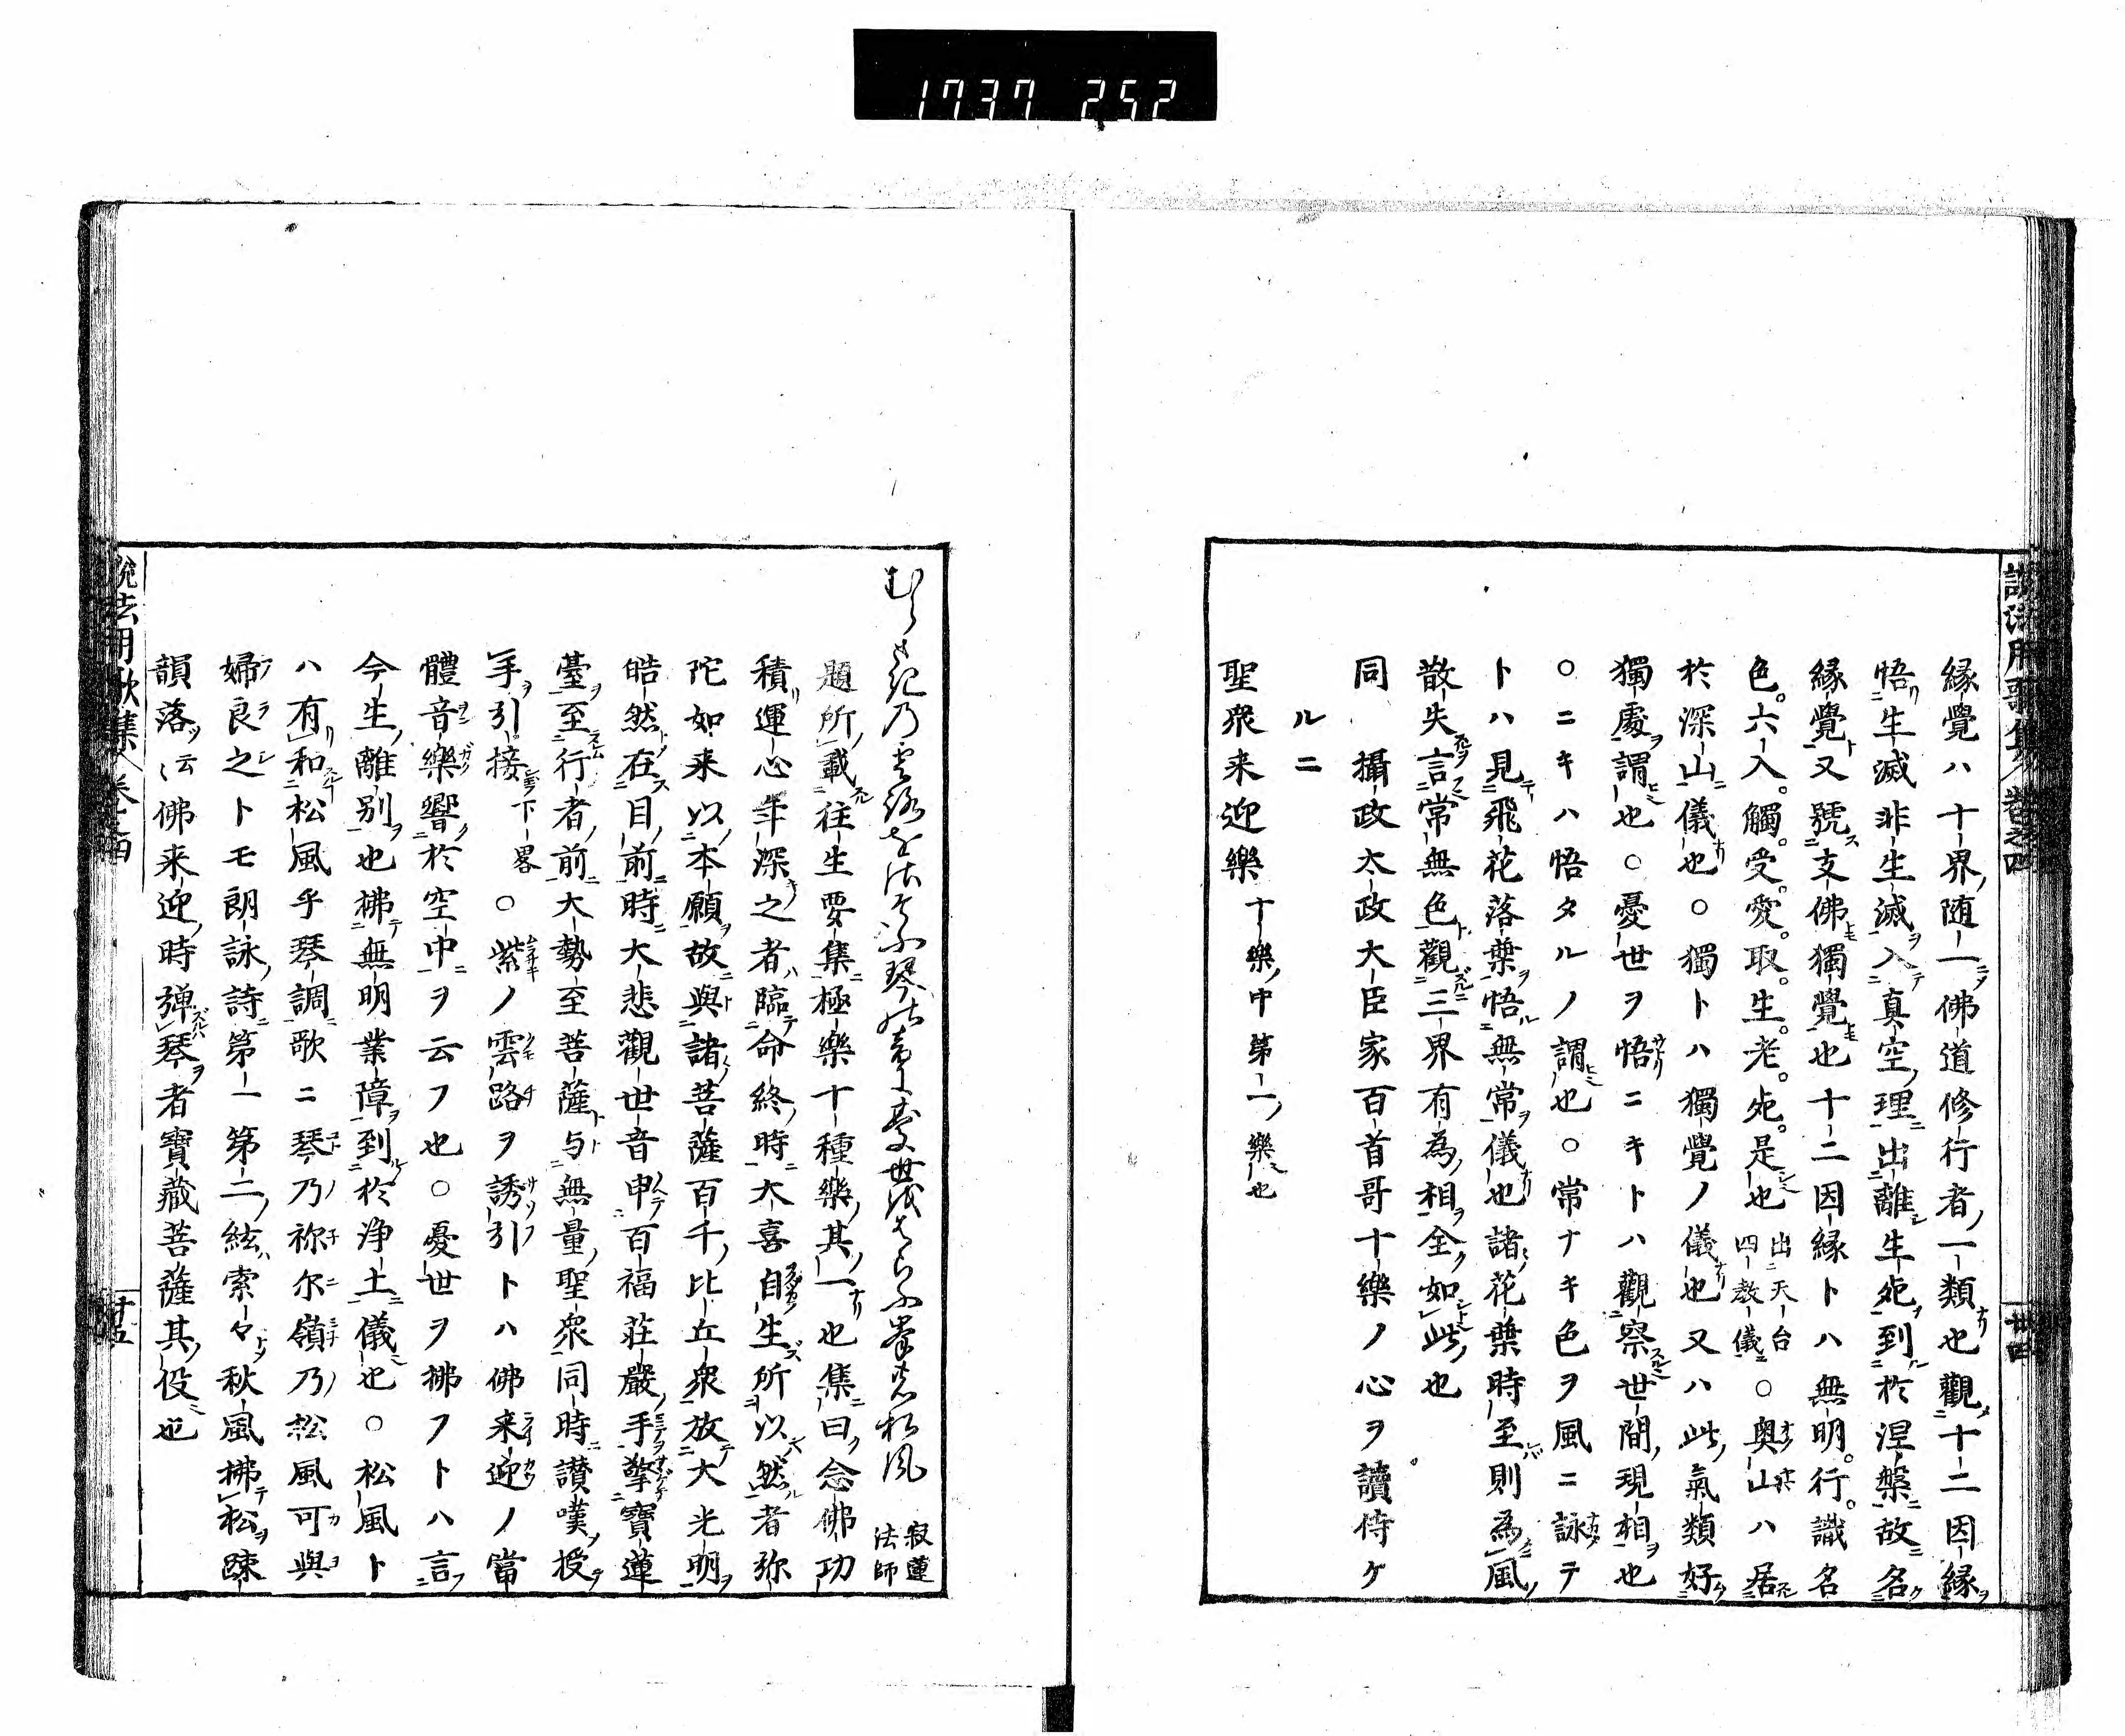 1737 252
説法用歌集 巻之四 丗四
縁覺ハ十界随一佛道修行者一類也觀十二因縁
悟生滅非生滅入真空理出離生死到於涅槃故名
縁覺又號支佛獨覺也十二因縁トハ無明。行。識名
色。六入。觸。受。愛。取。生。老。死。是也 出天台四教儀 ○奥山ハ居
於深山儀也○獨トハ獨覺ノ儀也又ハ此氣類好
獨處謂也○憂世ヲ悟ニキトハ觀察世間現相也
○ニキハ悟タルノ謂也○常ナキ色ヲ風ニ詠テ
トハ見飛花落葉悟無常儀也諸花葉時至則為風
散失言常無色觀三界有為相全如此也
同 攝政太政大臣家百首哥十樂ノ心ヲ讀侍ケ
ルニ
聖衆来迎樂 十樂中第一樂也
むらさきの雲路にさそふ琴の音にうき世をはらふ峯の松風 寂蓮法師
題所載往生要集極樂十種樂其一也集曰念佛功
積運心年深之者臨命終時大喜自生所以然者弥
陀如来以本願故與諸菩薩百千比丘衆放大光明
皓然在目前時大悲觀世音申百福莊嚴手擎寶蓮
臺至行者前大勢至菩薩与無量聖衆同時讃嘆授
手引接 下畧 ○紫ノ雲路ヲ誘引トハ佛来迎ノ當
體音樂響於空中ヲ云フ也○憂世ヲ拂フトハ言
今生離別也拂無明業障到於浄土儀也○松風ト
ハ有和松風乎琴調歌ニ琴乃祢尓嶺乃松風可與
婦良之トモ朗詠詩第一第二絃索々秋風拂松踈
韻落云云佛来迎時弾琴者寶藏菩薩其役也
説法用歌集 巻之四 丗五